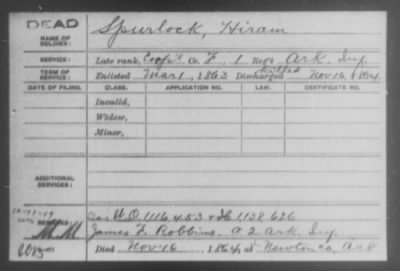 DEAD
NAME OF SOLDIER: Spurlock, Hiram
SERVICE: Late rank, Corp'l Co. F, 1 Reg't Ark. Inf.
TERM OF SERVICE: Enlisted Mar 1, 1863 Discharged Killed Nov 16, 1864
DATE OF FILING. CLASS. APPLICATION NO. LAW. CERTIFICATE NO.
Invalid,
Widow,
Minor,
ADDITIONAL SERVICES:
REMARKS: See W.O. 1116.453 +
1138.626
James F. Robbins. A 2 Ark Inf.
Died Nov 16, 1864, at Newton Co, Ark